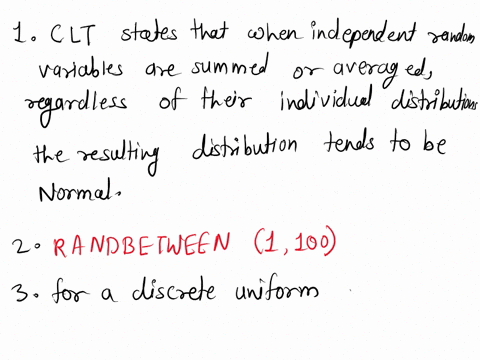 1. CLT states that when independent random
variables are summed or averaged,
regardless of their individual distributions
the resulting distribution tends to be
Normal.
2. RANDBETWEEN (1,100)
3. for a discrete uniform